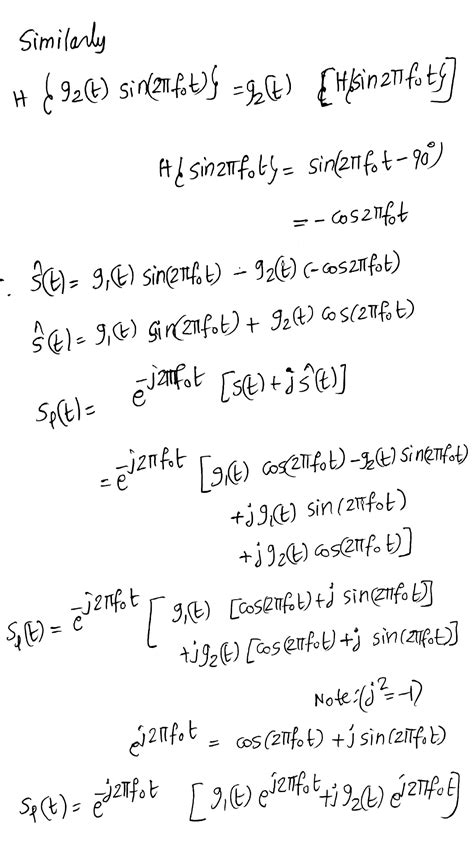 Similarly
H { g2(t) sin(2πf₀t)} = g2(t) [H{sin2πf₀t}]
H{sin2πf₀t} = sin(2πf₀t − 90°)
= − cos2πf₀t
∴ ŝ(t) = g₁(t) sin(2πf₀t) − g₂(t) (−cos2πf₀t)
ŝ(t) = g₁(t) sin(2πf₀t) + g₂(t) cos(2πf₀t)
Sₗ(t) = e^{−j2πf₀t} [s(t) + j ŝ(t)]
= e^{−j2πf₀t} [g₁(t) cos(2πf₀t) − g₂(t) sin(2πf₀t)
+ j g₁(t) sin(2πf₀t)
+ j g₂(t) cos(2πf₀t)]
Sₗ(t) = e^{−j2πf₀t} [ g₁(t) [cos(2πf₀t) + j sin(2πf₀t)]
+ j g₂(t) [cos(2πf₀t) + j sin(2πf₀t)]
Note:(j² = −1)
e^{j2πf₀t} = cos(2πf₀t) + j sin(2πf₀t)
Sₗ(t) = e^{−j2πf₀t} [ g₁(t) e^{j2πf₀t} + j g₂(t) e^{j2πf₀t}]